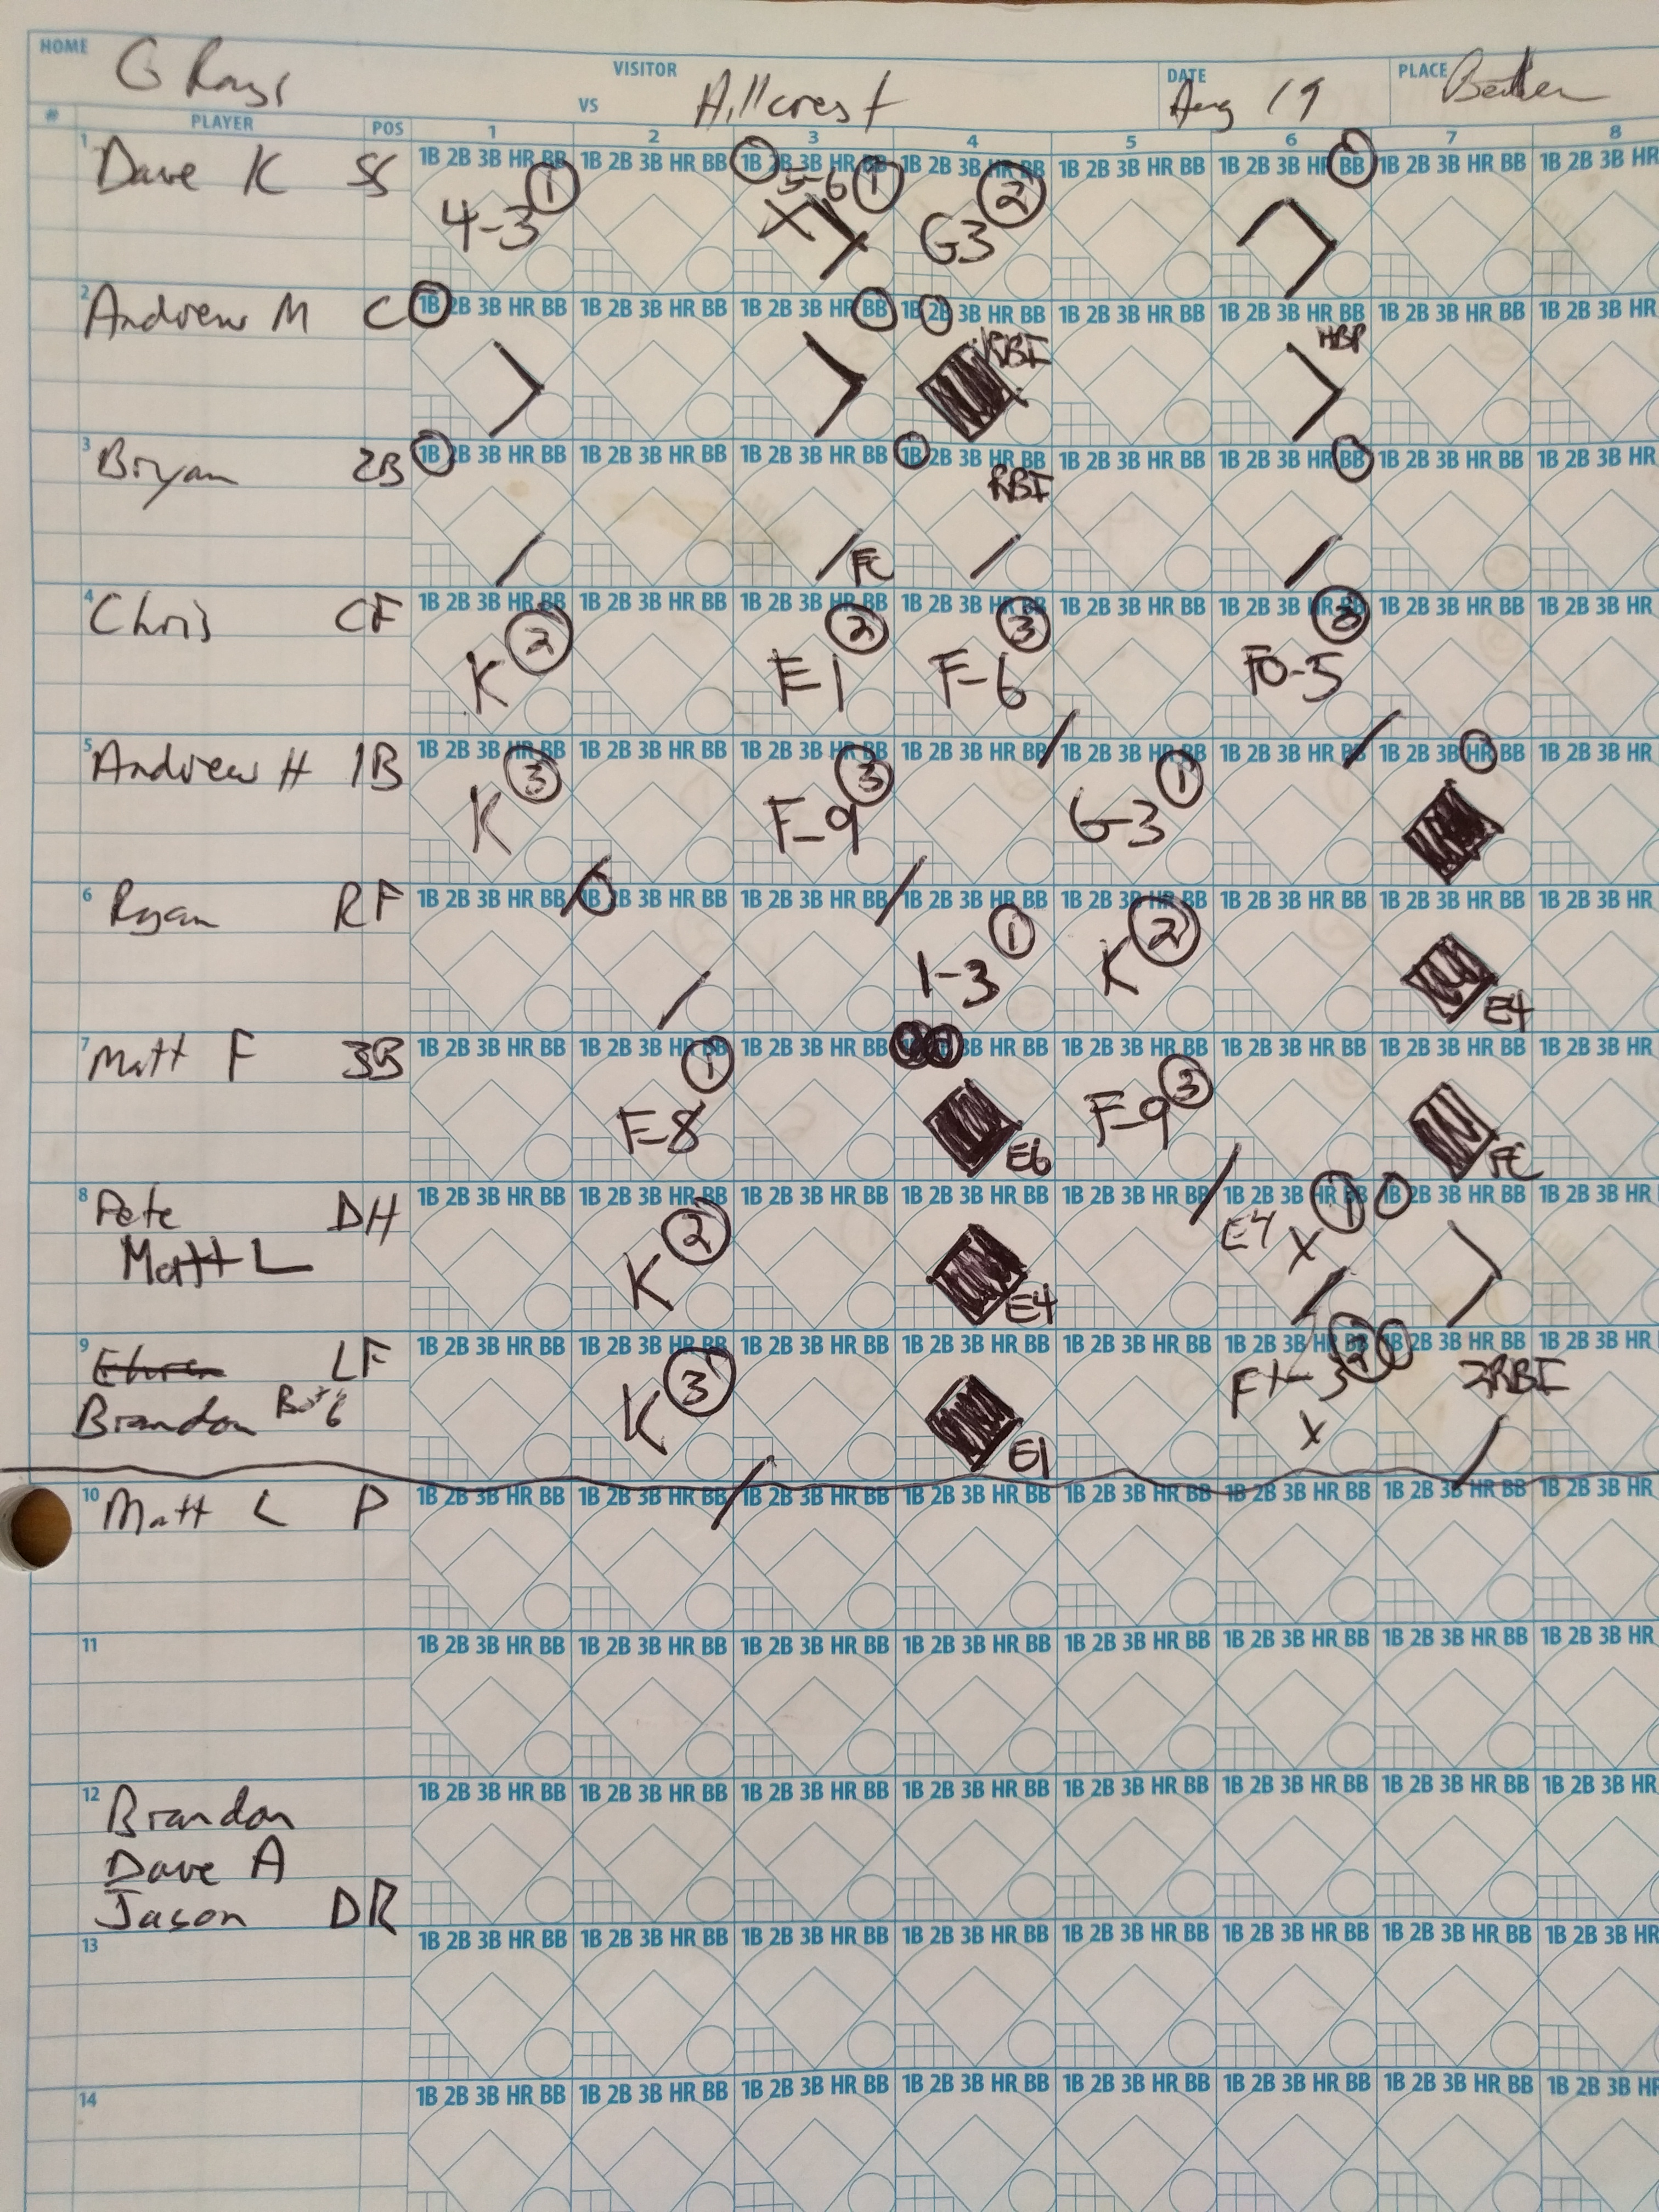 HOME G Rays VISITOR VS Hillcrest DATE Aug 19 PLACE
# PLAYER POS 1 2 3 4 5 6 7 8
1 Dave K SS 1B 2B 3B HR BB 1B 2B 3B HR BB 1B 2B 3B HR BB 1B 2B 3B HR BB 1B 2B 3B HR BB 1B 2B 3B HR BB 1B 2B 3B HR BB 1B 2B 3B HR
4-3 1 5-6 1 X G3 2
2 Andrew M C 1B 2B 3B HR BB 1B 2B 3B HR BB 1B 2B 3B HR BB 1B 2B 3B HR BB 1B 2B 3B HR BB 1B 2B 3B HR BB 1B 2B 3B HR BB 1B 2B 3B HR
RBI HBP
3 Bryan 2B 1B 2B 3B HR BB 1B 2B 3B HR BB 1B 2B 3B HR BB 1B 2B 3B HR BB 1B 2B 3B HR BB 1B 2B 3B HR BB 1B 2B 3B HR BB 1B 2B 3B HR
FC RBI
4 Chris CF 1B 2B 3B HR BB 1B 2B 3B HR BB 1B 2B 3B HR BB 1B 2B 3B HR BB 1B 2B 3B HR BB 1B 2B 3B HR BB 1B 2B 3B HR BB 1B 2B 3B HR
K 2 E1 2 F-6 3 FO-5 3
5 Andrew H 1B 1B 2B 3B HR BB 1B 2B 3B HR BB 1B 2B 3B HR BB 1B 2B 3B HR BB 1B 2B 3B HR BB 1B 2B 3B HR BB 1B 2B 3B HR BB 1B 2B 3B HR
K 3 F-9 3 G-3 1
6 Ryan RF 1B 2B 3B HR BB 1B 2B 3B HR BB 1B 2B 3B HR BB 1B 2B 3B HR BB 1B 2B 3B HR BB 1B 2B 3B HR BB 1B 2B 3B HR BB 1B 2B 3B HR
1-3 1 K 2 E4
7 Matt F 3B 1B 2B 3B HR BB 1B 2B 3B HR BB 1B 2B 3B HR BB 3B HR BB 1B 2B 3B HR BB 1B 2B 3B HR BB 1B 2B 3B HR BB 1B 2B 3B HR
F-8 1 E6 F-9 3 FC
8 Pete DH 1B 2B 3B HR BB 1B 2B 3B HR BB 1B 2B 3B HR BB 1B 2B 3B HR BB 1B 2B 3B HR BB 1B 2B 3B HR BB 1B 2B 3B HR BB 1B 2B 3B HR
Matt L K 2 E4 E4 X 1
9 Ehren LF 1B 2B 3B HR BB 1B 2B 3B HR BB 1B 2B 3B HR BB 1B 2B 3B HR BB 1B 2B 3B HR BB 1B 2B 3B HR BB 1B 2B 3B HR BB 1B 2B 3B HR
Brandon K 3 E1 2 X 2RBI
10 Matt L P 1B 2B 3B HR BB 1B 2B 3B HR BB 1B 2B 3B HR BB 1B 2B 3B HR BB 1B 2B 3B HR BB 1B 2B 3B HR BB 1B 2B 3B HR BB 1B 2B 3B HR
11 1B 2B 3B HR BB 1B 2B 3B HR BB 1B 2B 3B HR BB 1B 2B 3B HR BB 1B 2B 3B HR BB 1B 2B 3B HR BB 1B 2B 3B HR BB 1B 2B 3B HR
12 Brandon 1B 2B 3B HR BB 1B 2B 3B HR BB 1B 2B 3B HR BB 1B 2B 3B HR BB 1B 2B 3B HR BB 1B 2B 3B HR BB 1B 2B 3B HR BB 1B 2B 3B HR
Dave A
Jason DR
13 1B 2B 3B HR BB 1B 2B 3B HR BB 1B 2B 3B HR BB 1B 2B 3B HR BB 1B 2B 3B HR BB 1B 2B 3B HR BB 1B 2B 3B HR BB 1B 2B 3B HR
14 1B 2B 3B HR BB 1B 2B 3B HR BB 1B 2B 3B HR BB 1B 2B 3B HR BB 1B 2B 3B HR BB 1B 2B 3B HR BB 1B 2B 3B HR BB 1B 2B 3B HR